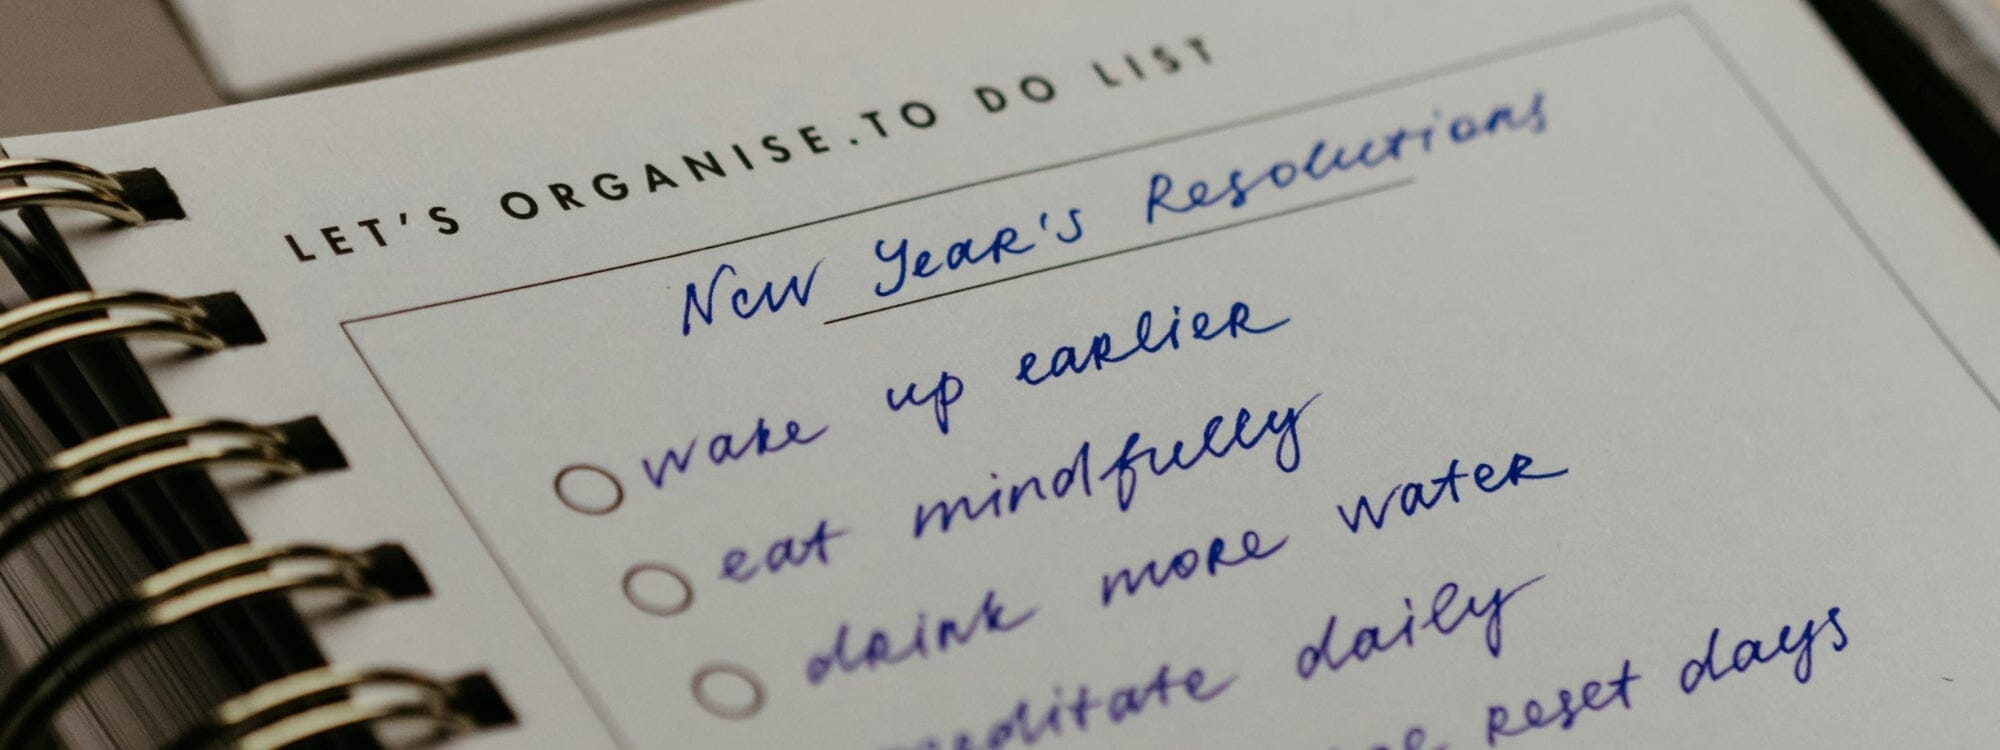 LET'S ORGANISE.TO DO LIST
New Year's Resolutions
wake up earlier
eat mindfully
drink more water
meditate daily
reset days